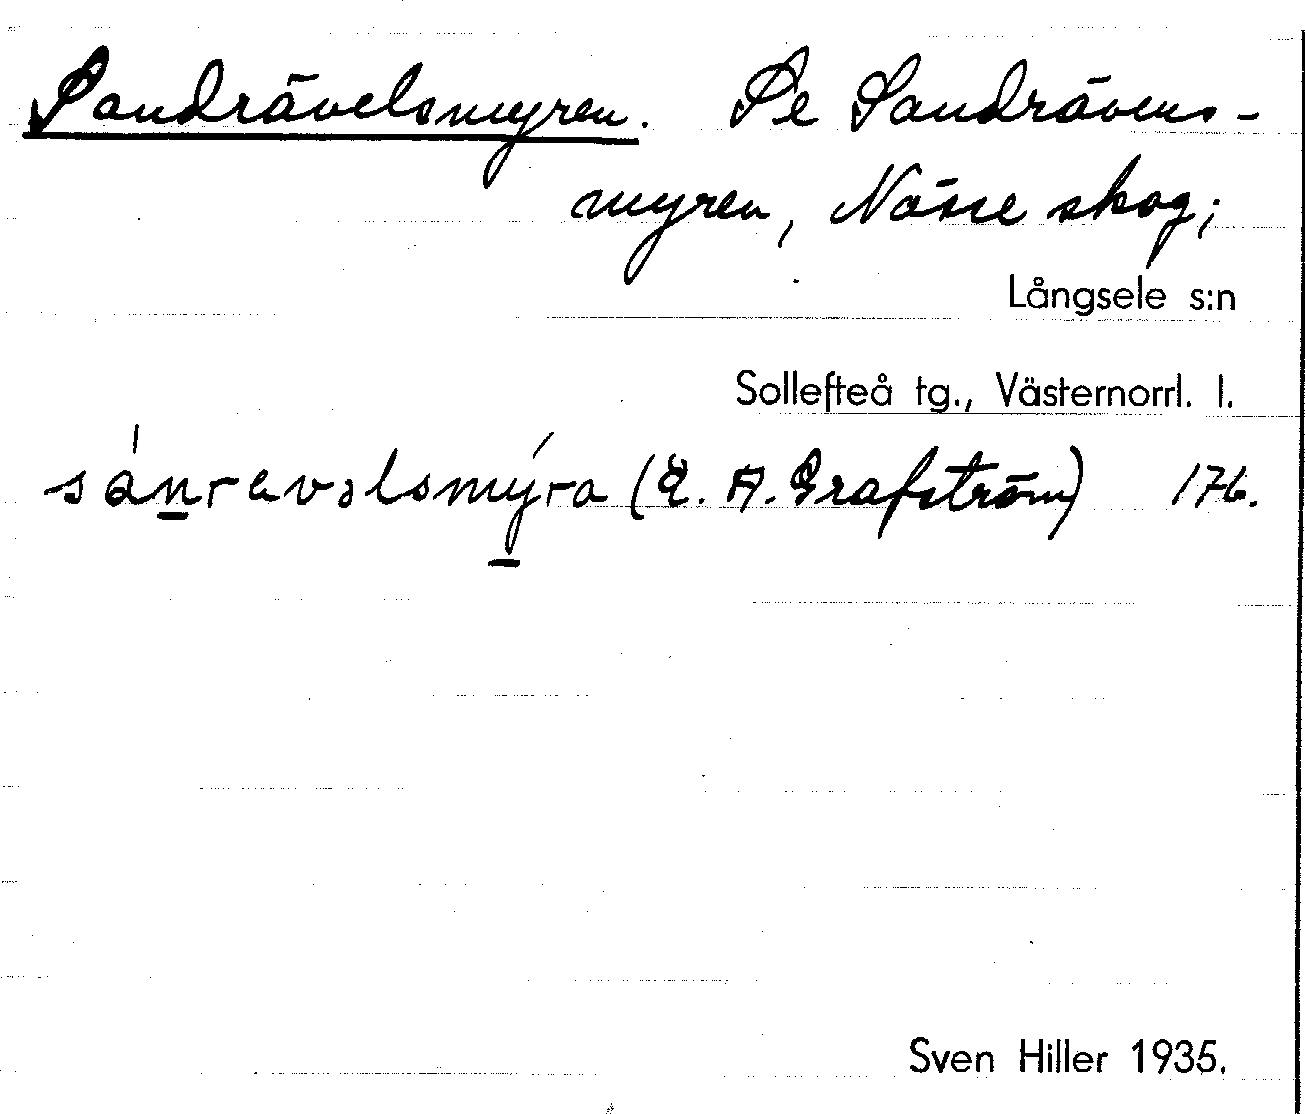 Sandrävelsmyren. Se Sandrävens-
myren, Nässe skog;
Långsele s:n
Sollefteå tg., Västernorrl. l.
sánravəlsmýra (E. A. Grafström) 176.
Sven Hiller 1935.